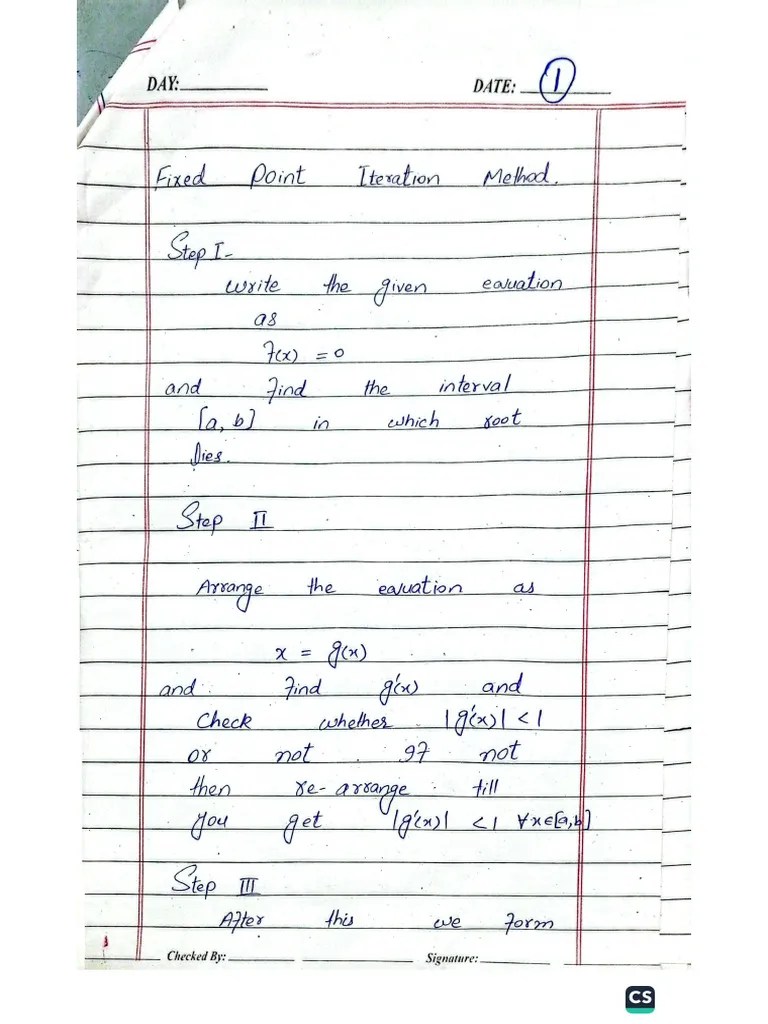 DAY: DATE: 1
Fixed Point Iteration Method.
Step I-
write the given equation
as
f(x) = 0
and find the interval
[a, b] in which root
lies.
Step II
Arrange the equation as
x = g(x)
and find g'(x) and
Check whether |g'(x)| < 1
or not. If not
then re-arrange till
you get |g'(x)| < 1 ∀x∈[a,b]
Step III
After this we form
Checked By: Signature:
CS